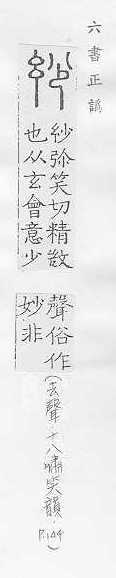 六書正譌
紗弥笑切精𢼸
也从玄會意少
聲俗作
妙非
(去聲.十八嘯笑韻.
P.144)